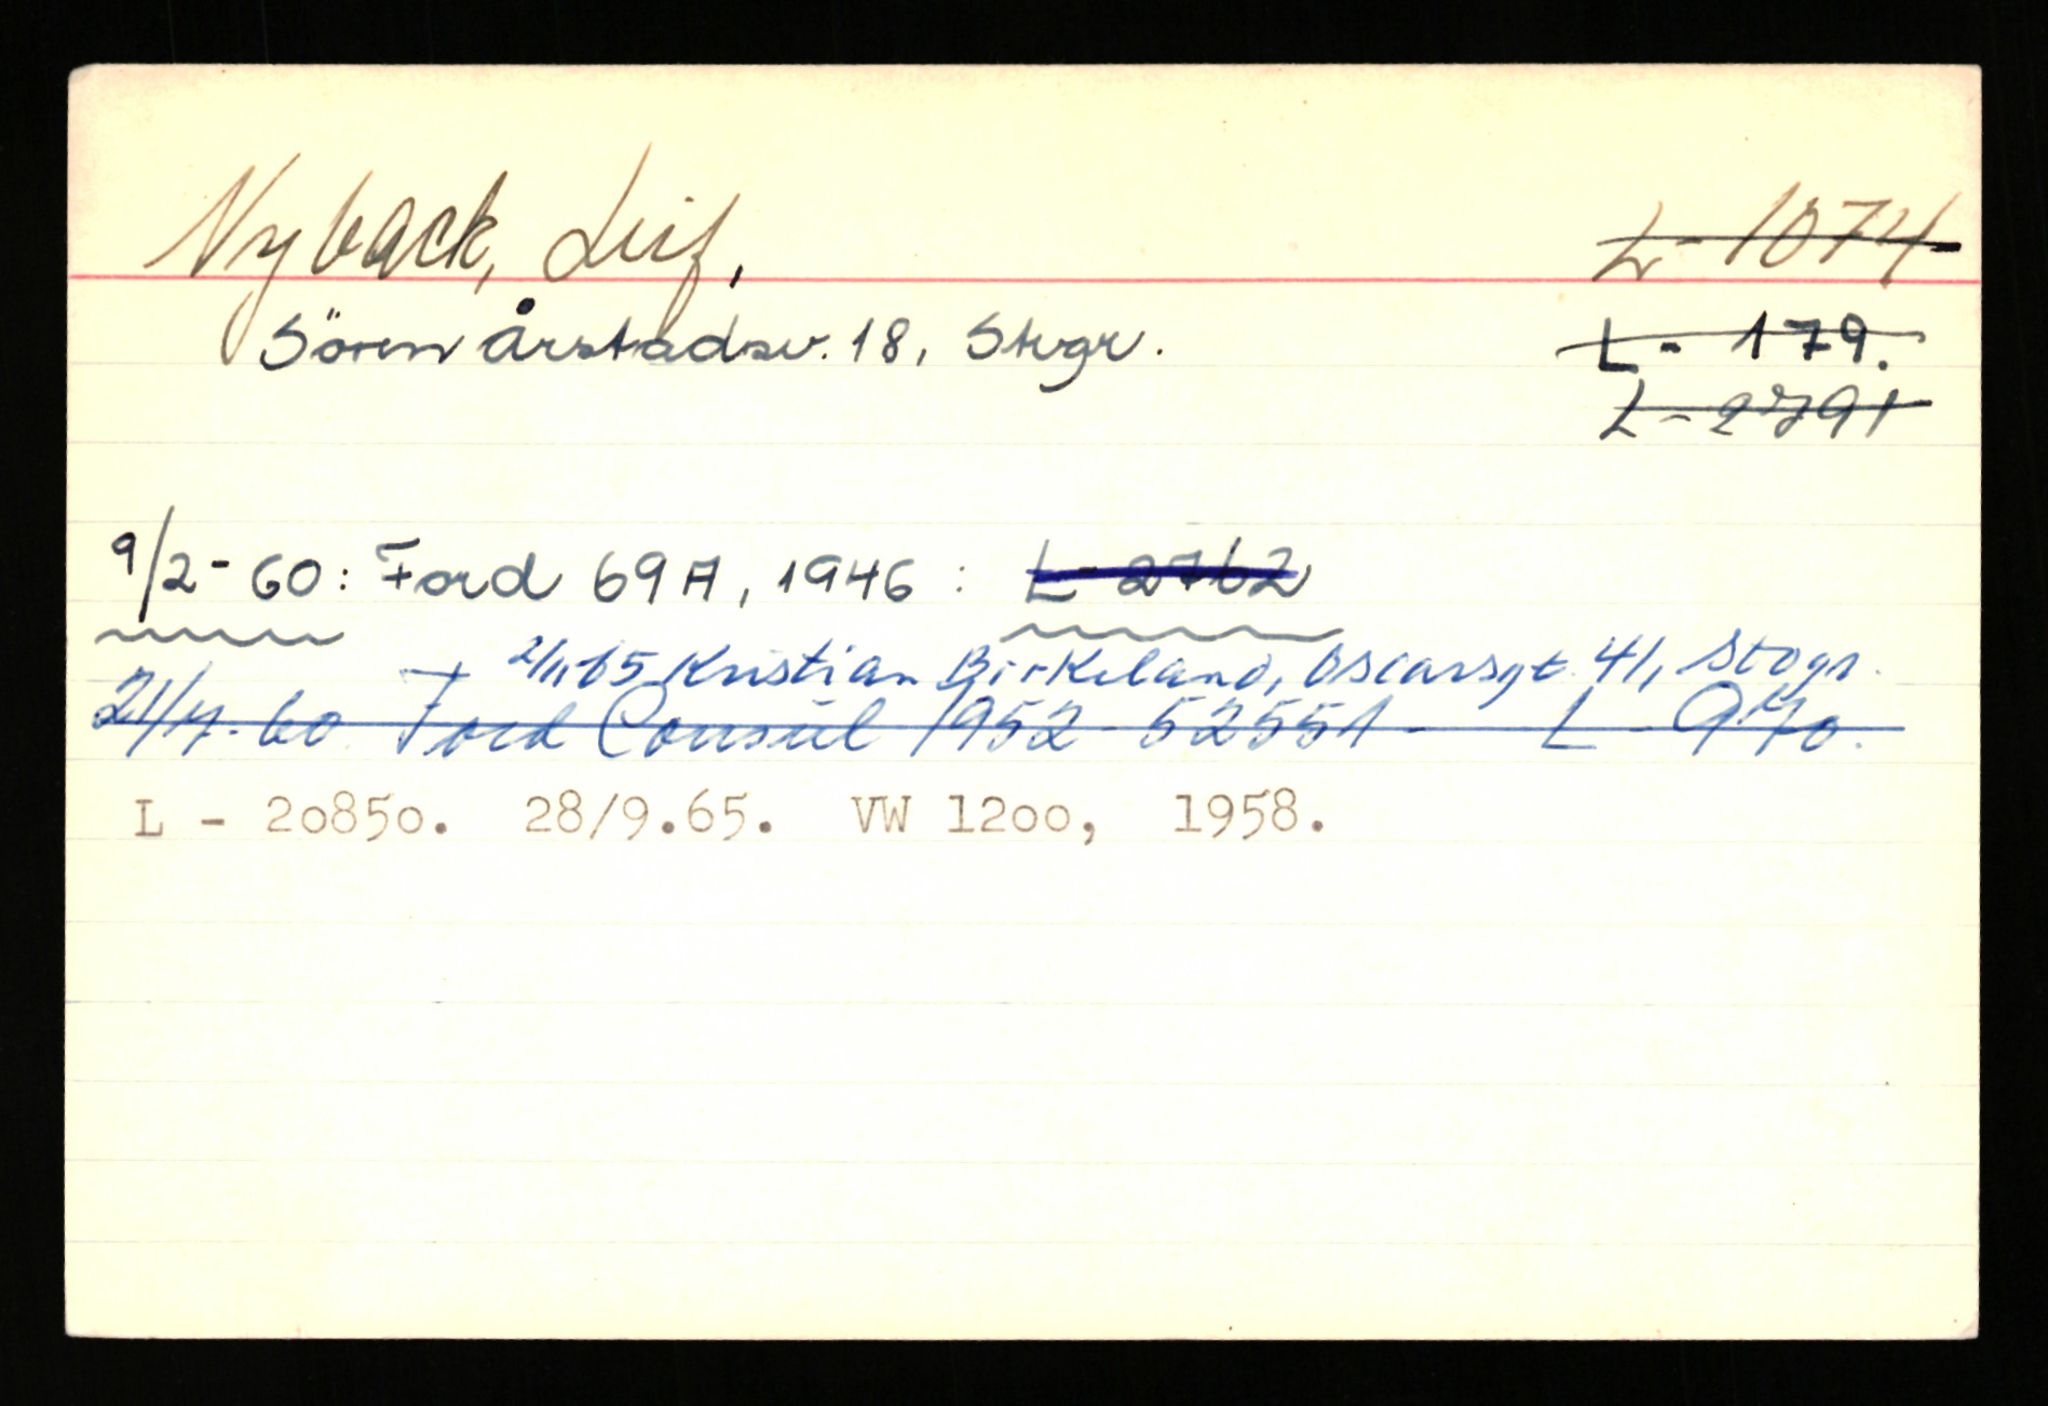 Nyback, Leif,
L - 1074
Sören Årstadsv. 18, Stvgr.
L - 179.
L - 2791
9/2 - 60: Ford 69A, 1946 : L - 2762
2/11-65 Kristian Birkeland, Oscarsgt. 41, Stvgr.
21/4-60 Ford Consul 1952 52551 - L - 970.
L - 20850. 28/9.65. VW 1200, 1958.